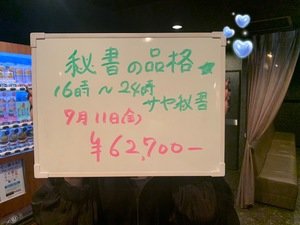 秘書の品格
16時～24時
サヤ秘書
9月11日(金)
¥62,700-